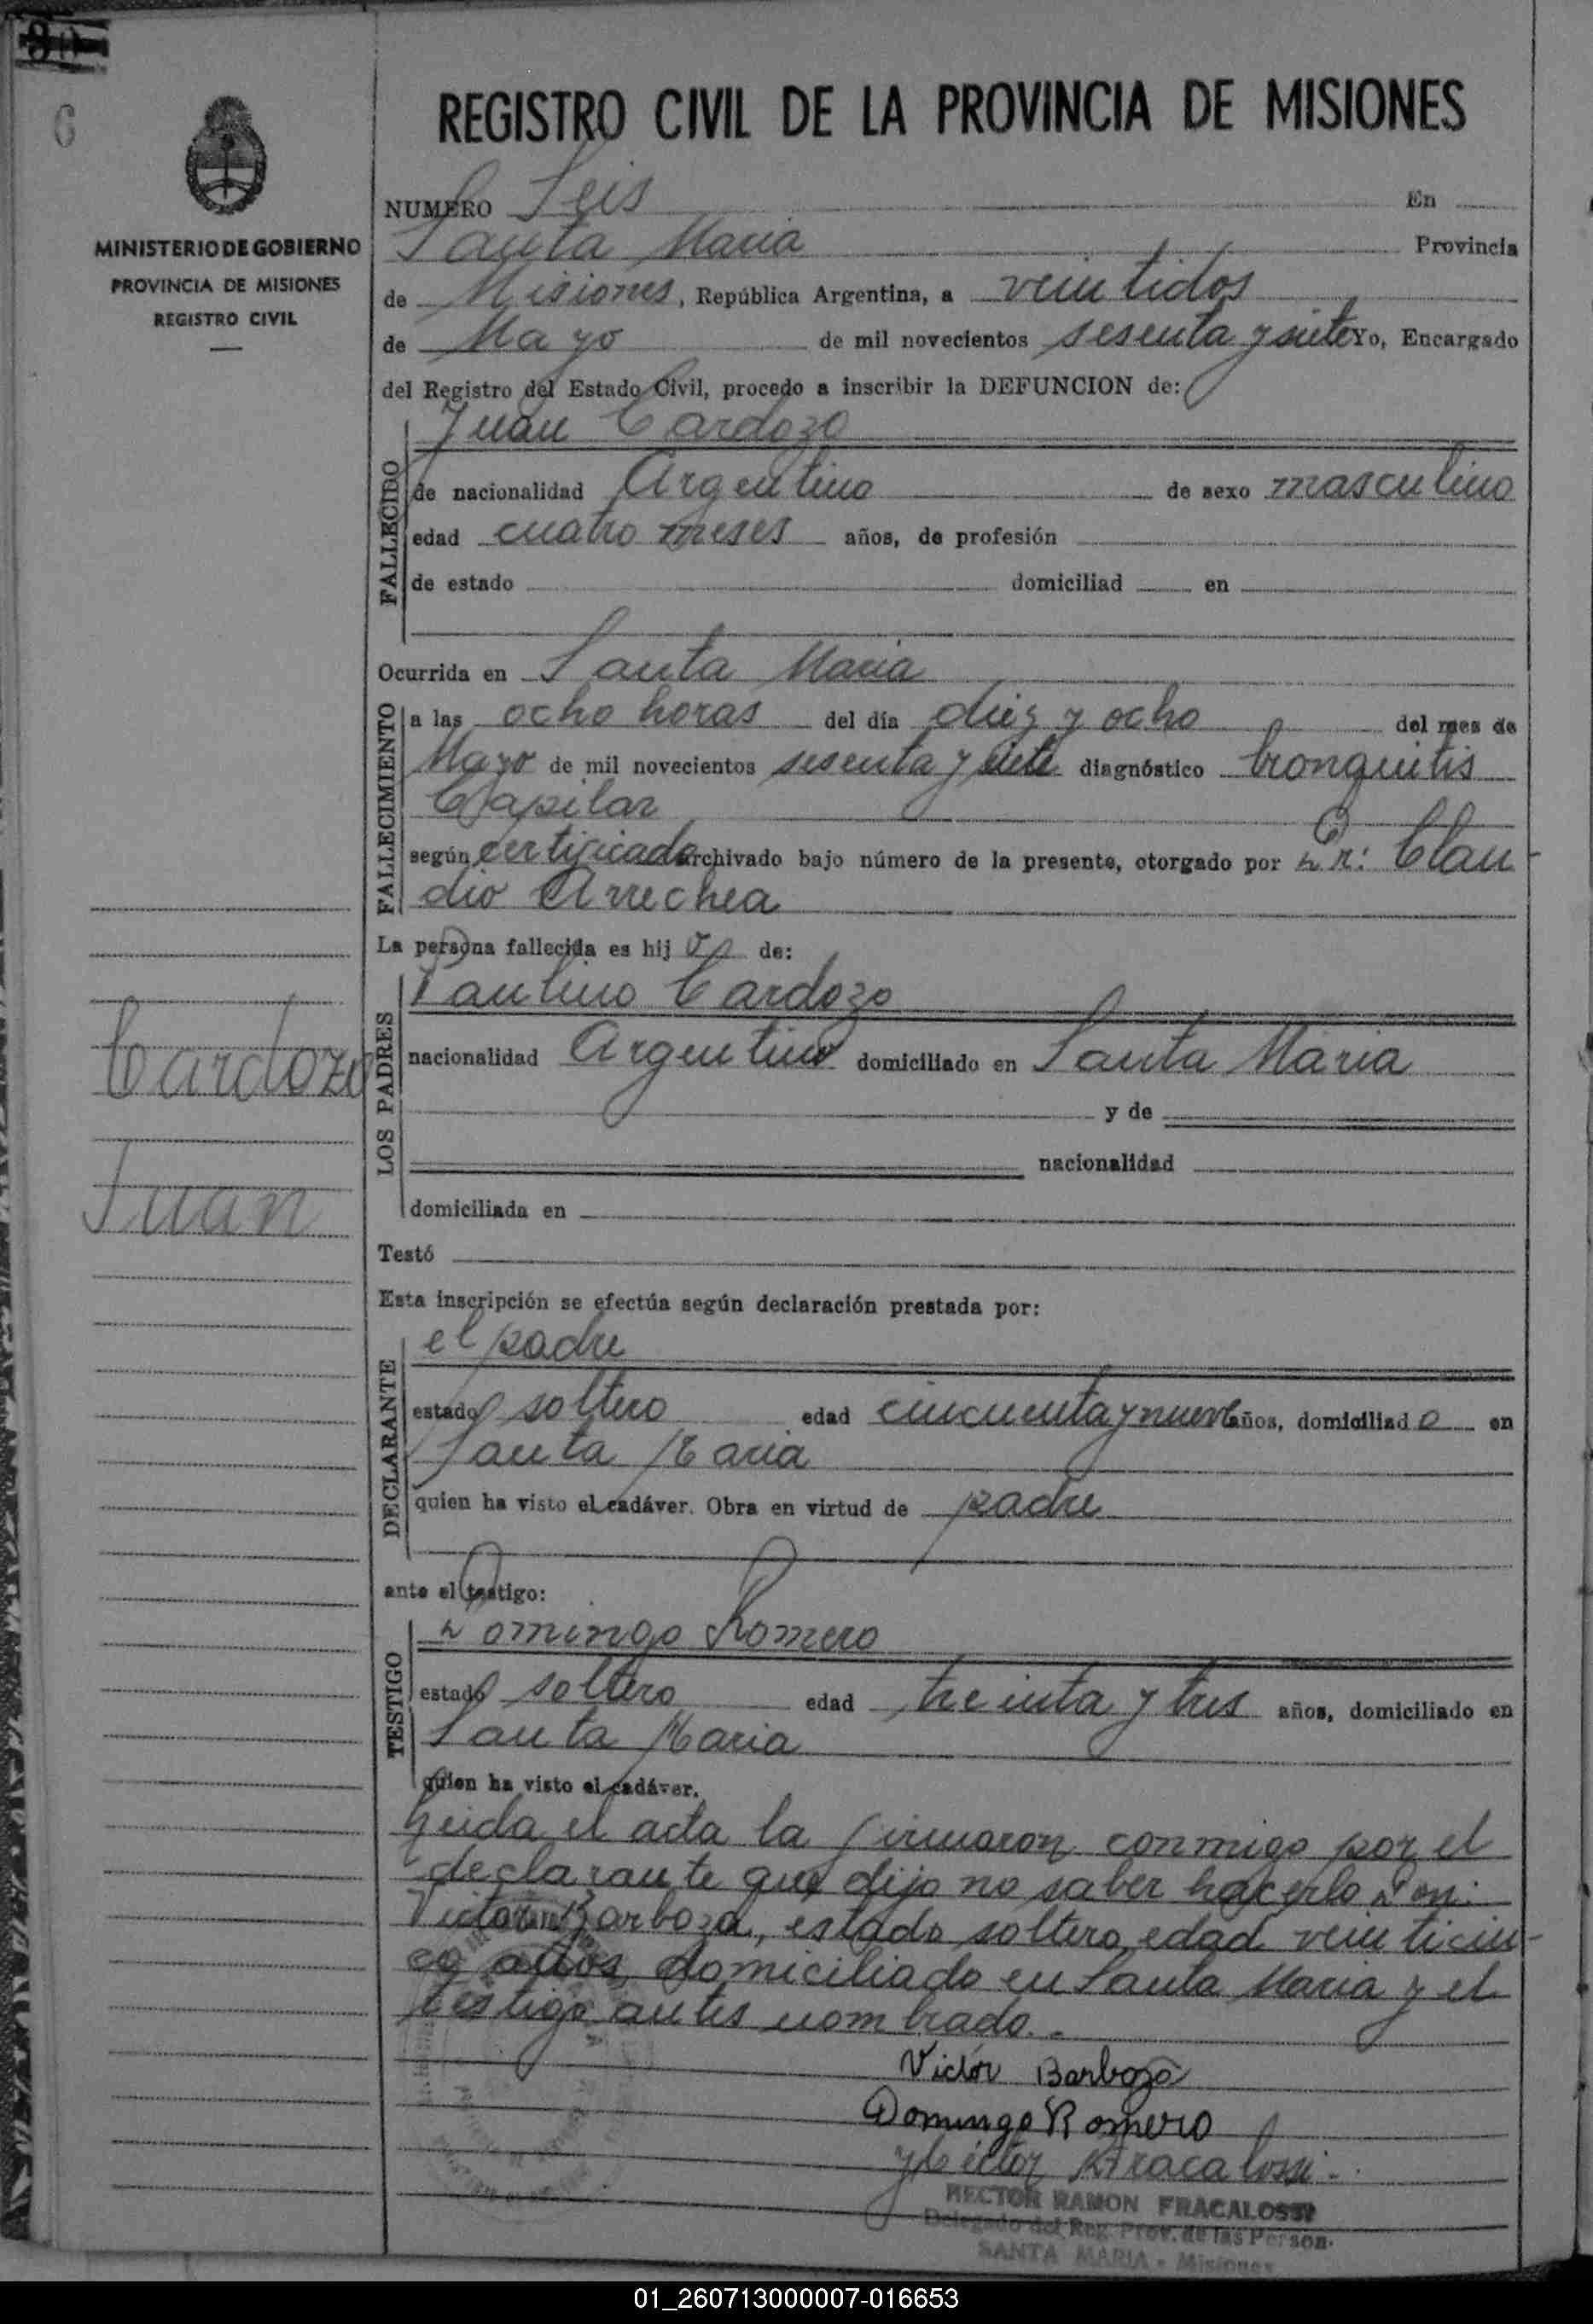 6
MINISTERIO DE GOBIERNO
PROVINCIA DE MISIONES
REGISTRO CIVIL
REGISTRO CIVIL DE LA PROVINCIA DE MISIONES
NUMERO Seis En
Santa Maria Provincia
de Misiones, República Argentina, a veintidos
de Mayo de mil novecientos sesenta y siete Yo, Encargado
del Registro del Estado Civil, procedo a inscribir la DEFUNCION de:
FALLECIDO
Juan Cardozo
de nacionalidad Argentino de sexo masculino
edad cuatro meses años, de profesión
de estado domiciliad en
Ocurrida en Santa Maria
FALLECIMIENTO
a las ocho horas del día diez y ocho del mes de
Mayo de mil novecientos sesenta y siete diagnóstico bronquitis
Capilar
según certificado archivado bajo número de la presente, otorgado por Dr: Clau-
dio Arrechea
La persona fallecida es hij o de:
LOS PADRES
Paulino Cardozo
nacionalidad Argentino domiciliado en Santa Maria
y de
nacionalidad
domiciliada en
Cardozo
Juan
Testó
Esta inscripción se efectúa según declaración prestada por:
DECLARANTE
el padre
estado soltero edad cincuenta y nueve años, domiciliad o en
Santa Maria
quien ha visto el cadáver. Obra en virtud de padre
ante el testigo:
TESTIGO
Domingo Romero
estado soltero edad treinta y tres años, domiciliado en
Santa Maria
quien ha visto el cadáver.
Leida el acta la firmaron conmigo por el
declarante que dijo no saber hacerlo Don:
Victor Barboza, estado soltero, edad veinticin-
co años domiciliado en Santa Maria y el
testigo antes nombrado.-
Victor Barboza
Domingo Romero
Hector Fracalossi
HECTOR RAMON FRACALOSSI
Delegado del Reg. Prov. de las Person.
SANTA MARIA - Misiones
01_260713000007-016653